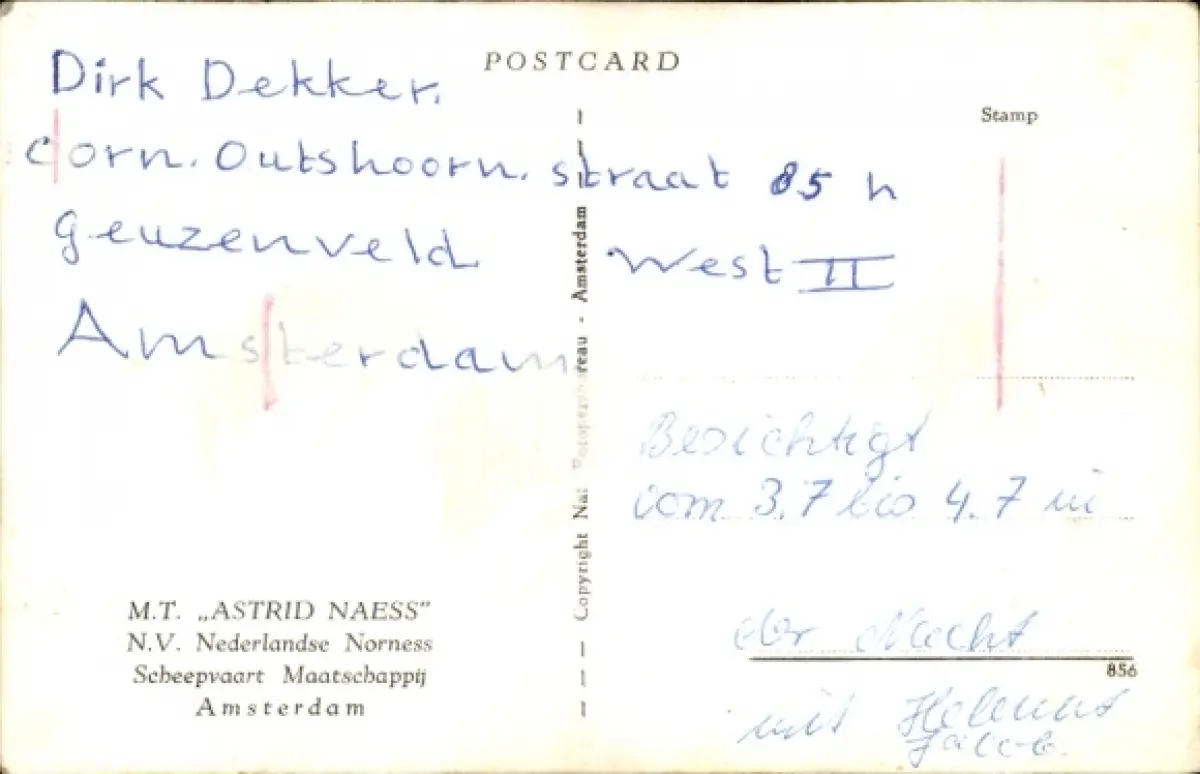 POSTCARD
Stamp
Dirk Dekker.
Corn. Outshoorn. straat 85 h
Geuzenveld West II
Amsterdam
Besichtigt
vom 3.7 bis 4.7 in
der Nacht
mit Helmut
Jacob.
M.T. „ASTRID NAESS”
N.V. Nederlandse Norness
Scheepvaart Maatschappij
Amsterdam
856
Copyright Na: - Amsterdam